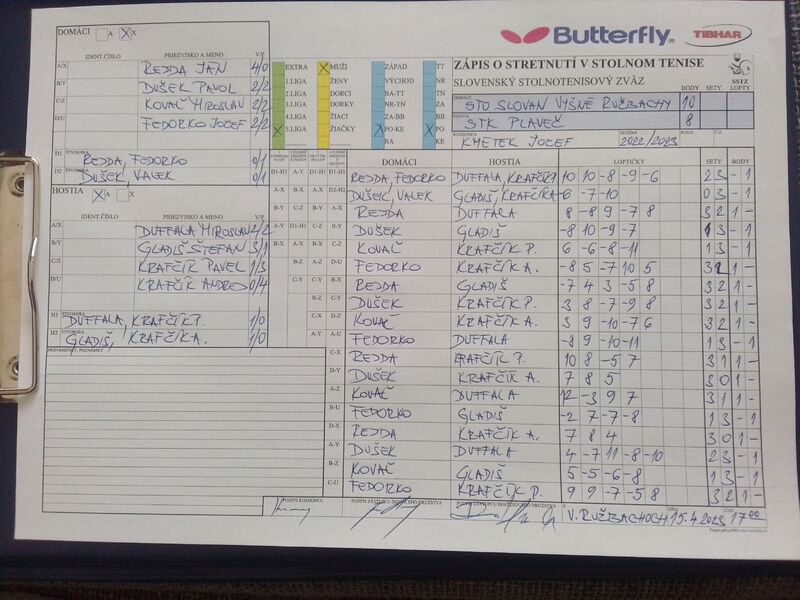 DOMÁCI A X
Butterfly
TIBHAR
IDENT.ČÍSLO PRIEZVISKO A MENO V/P
A/X REJDA JÁN 4/0
B/Y DUŠEK PAVOL 2/2
C/Z KOVAČ MIROSLAV 2/2
D/U FEDORKO JOZEF 2/2
D1 ŠTVORHRA REJDA, FEDORKO 0/1
D2 ŠTVORHRA DUŠEK, VALEK 0/1
HOSTIA A X
IDENT.ČÍSLO PRIEZVISKO A MENO V/P
A/X DUFFALA MIROSLAV 2/2
B/Y GLADIŠ ŠTEFAN 3/1
C/Z KRAFČÍK PAVEL 1/3
D/U KRAFČÍK ANDREJ 0/4
H1 ŠTVORHRA DUFFALA, KRAFČÍK P. 1/0
H2 ŠTVORHRA GLADIŠ, KRAFČÍK A. 1/0
PRIPOMIENKY, POZNÁMKY
EXTRA MUŽI ZÁPAD TT
1.LIGA ŽENY VÝCHOD NR
2.LIGA DORCI BA-TT TN
3.LIGA DORKY NR-TN ZA
4.LIGA ŽIACI ZA-BB BB
5.LIGA ŽIAČKY PO-KE PO
BA KE
ZÁPIS O STRETNUTÍ V STOLNOM TENISE
SLOVENSKÝ STOLNOTENISOVÝ ZVÄZ
SSTZ
BODY SETY LOPTY
DOMÁCI STO SLOVAN VYŠNÉ RUŽBACHY 10
HOSTIA STK PLAVEČ 8
ROZHODCA KMETEK JOZEF SEZÓNA 2022/2023 KOLO Č.
DOMÁCI HOSTIA LOPTIČKY SETY BODY
REJDA, FEDORKO DUFFALA, KRAFČÍK P. 10 10 -8 -9 -6 2 3 - 1
DUŠEK, VALEK GLADIŠ, KRAFČÍK A. -6 -7 -10 0 3 - 1
REJDA DUFFALA 8 -8 9 -7 8 3 2 1 -
DUŠEK GLADIŠ -8 10 -9 -7 1 3 - 1
KOVAČ KRAFČÍK P. 6 -6 -8 -11 1 3 - 1
FEDORKO KRAFČÍK A. -8 5 -7 10 5 3 2 1 -
REJDA GLADIŠ -7 4 3 -5 8 3 2 1 -
DUŠEK KRAFČÍK P. 3 8 -7 -9 8 3 2 1 -
KOVAČ KRAFČÍK A. 3 9 -10 -7 6 3 2 1 -
FEDORKO DUFFALA -8 9 -10 -11 1 3 - 1
REJDA KRAFČÍK P. 10 8 -5 7 3 1 1 -
DUŠEK KRAFČÍK A. 7 8 5 3 0 1 -
KOVAČ DUFFALA 12 -3 9 7 3 1 1 -
FEDORKO GLADIŠ -2 7 -7 -8 1 3 - 1
REJDA KRAFČÍK A. 7 8 4 3 0 1 -
DUŠEK DUFFALA 4 -7 11 -8 -10 2 3 - 1
KOVAČ GLADIŠ 5 -5 -6 -8 1 3 - 1
FEDORKO KRAFČÍK P. 9 9 -7 -5 8 3 2 1 -
PODPIS ROZHODCU PODPIS ZÁSTUPCU DOMÁCEHO DRUŽSTVA PODPIS ZÁSTUPCU HOSŤUJÚCEHO DRUŽSTVA V V. RUŽBACHOCH DŇA 15.4.2023 ČAS 17 00